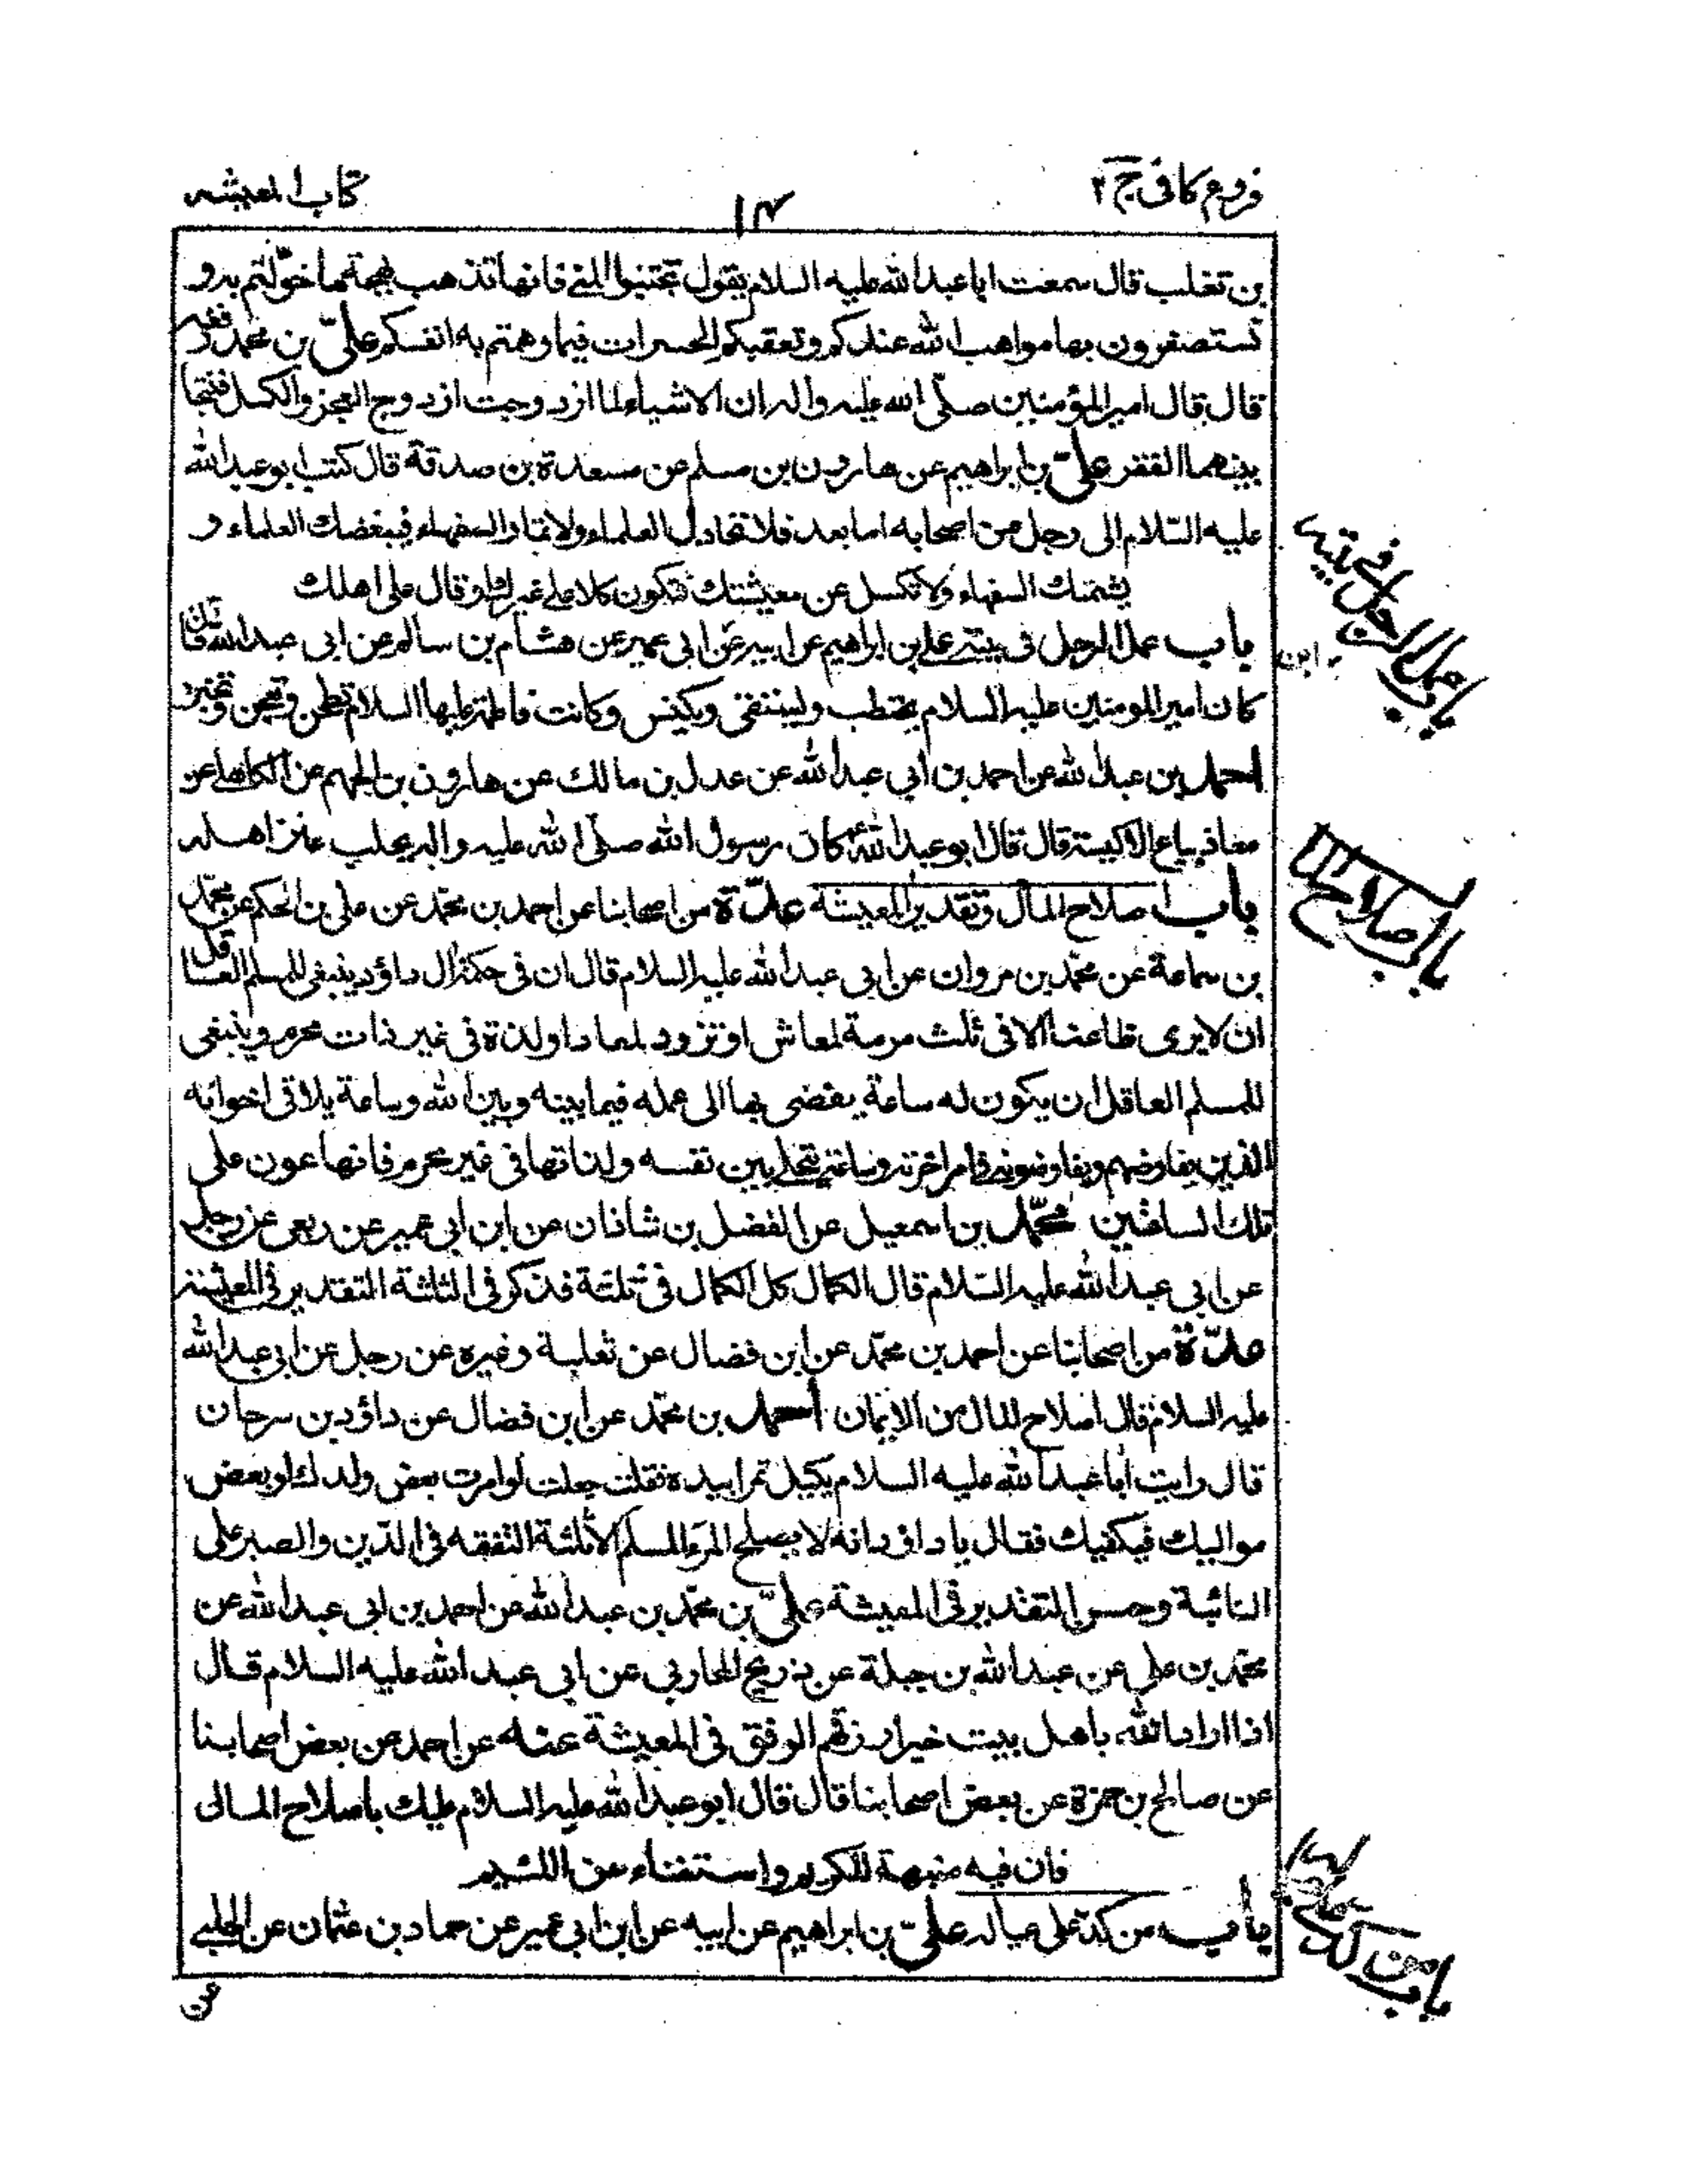 فروع كافى ج ٢
كتاب المعيشه
بن تغلب قال سمعت ابا عبد الله عليه السلام يقول تجتنبوا المنى فانها تذهب بهجة ما خوّلتم به و
تستصغرون بها مواهب الله عندكم وتعقبكم الحسرات فيما وهمتم به انفسكم علىّ بن محمد رفعه
قال قال امير المؤمنين صلّى الله عليه واله ان الاشياء لما ازدوجت ازدوج العجز والكسل فنتجا
بينهما الفقر علىّ بن ابراهيم عن هارون بن مسلم عن مسعدة بن صدقة قال كتب ابو عبد الله
عليه السّلام الى رجل من اصحابه اما بعد فلا تجادل العلماء ولا تمار السفهاء فيبغضك العلماء و
يشتمك السفهاء ولا تكسل عن معيشتك فتكون كلا على غيرك او قال على اهلك
باب عمل الرجل فى بيته على بن ابراهيم عن ابيه عن ابى عمير عن هشام بن سالم عن ابى عبد الله قال
ابن
كان امير المومنين عليه السلام يحتطب ويستقى ويكنس وكانت فاطمة عليها السلام تطحن وتعجن وتخبز
احمد بن عبد الله عن احمد بن ابي عبد الله عن عدل بن مالك عن هارون بن الجهم عن الكاهلى عن
معاذ بياع الاكيسة قال قال ابو عبد الله كان رسول الله صلّى الله عليه واله يحلب عنز اهله
باب اصلاح المال وتقدير المعيشة عدّة من اصحابنا عن احمد بن محمّد عن على بن الحكم عن محمّد
بن سماعة عن محمّد بن مروان عن ابى عبد الله عليه السلام قال ان فى حكمة ال داؤد ينبغى للمسلم العاقل
ان لا يرى ظاعنا الا فى ثلث مرمة لمعاش او تزود لمعاد او لذة فى غير ذات محرم وينبغى
للمسلم العاقل ان يكون له ساعة يفضى بها الى عمله فيما بينه وبين الله وساعة يلاقى اخوانه
الذين يفاوضهم ويفاوضونه فى امر اخرته وساعة يخلى بين نفسه ولذاتها فى غير محرم فانها عون على
تلك الساعتين محمّد بن اسمعيل عن الفضل بن شاذان عن ابن ابى عمير عن ربعى عن رجل
عن ابى عبد الله عليه السّلام قال الكمال كل الكمال فى ثلثة فذكر فى الثلثة التقدير فى المعيشة
عدّة من اصحابنا عن احمد بن محمّد عن ابن فضال عن ثعلبة وغيره عن رجل عن ابى عبد الله
عليه السلام قال اصلاح المال من الايمان احمد بن محمّد عن ابن فضال عن داؤد بن سرحان
قال رايت ابا عبد الله عليه السلام يكيل تمرا بيده فقلت جعلت لو امرت بعض ولدك او بعض
مواليك فيكفيك فقال يا داؤد انه لا يصلح المرء المسلم الا ثلثة التفقه فى الدّين والصبر على
النائبة وحسن التقدير فى المعيشة علىّ بن محمّد بن عبد الله عن احمد بن ابى عبد الله عن
محمّد بن على عن عبد الله بن جبلة عن ذريح المحاربى عن ابى عبد الله عليه السلام قال
اذا اراد الله باهل بيت خيرا رزقهم الرفق فى المعيشة عنه عن احمد عن بعض اصحابنا
عن صالح بن حمزة عن بعض اصحابنا قال قال ابو عبد الله عليه السلام عليك باصلاح المال
فان فيه منبهة للكريم واستغناء عن اللئيم
باب من كدّ على عياله علىّ بن ابراهيم عن ابيه عن ابن ابى عمير عن حماد بن عثمان عن الحلبى
عن
باب عمل الرجل فى بيته
باب اصلاح المال
باب من كد على عياله